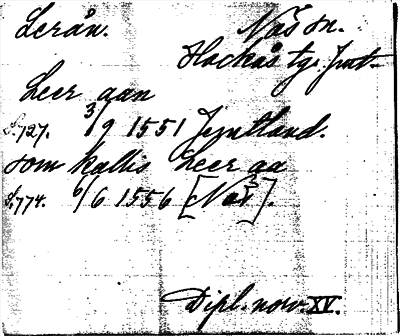 Lerån. Näs sn.
Hackås tg. Jmt.
Leer aan
S. 727. 3/9 1551 Jemtland.
som kallis Leer aa
S. 774. 6/6 1556 [Näs].
Dipl. norv. XV.